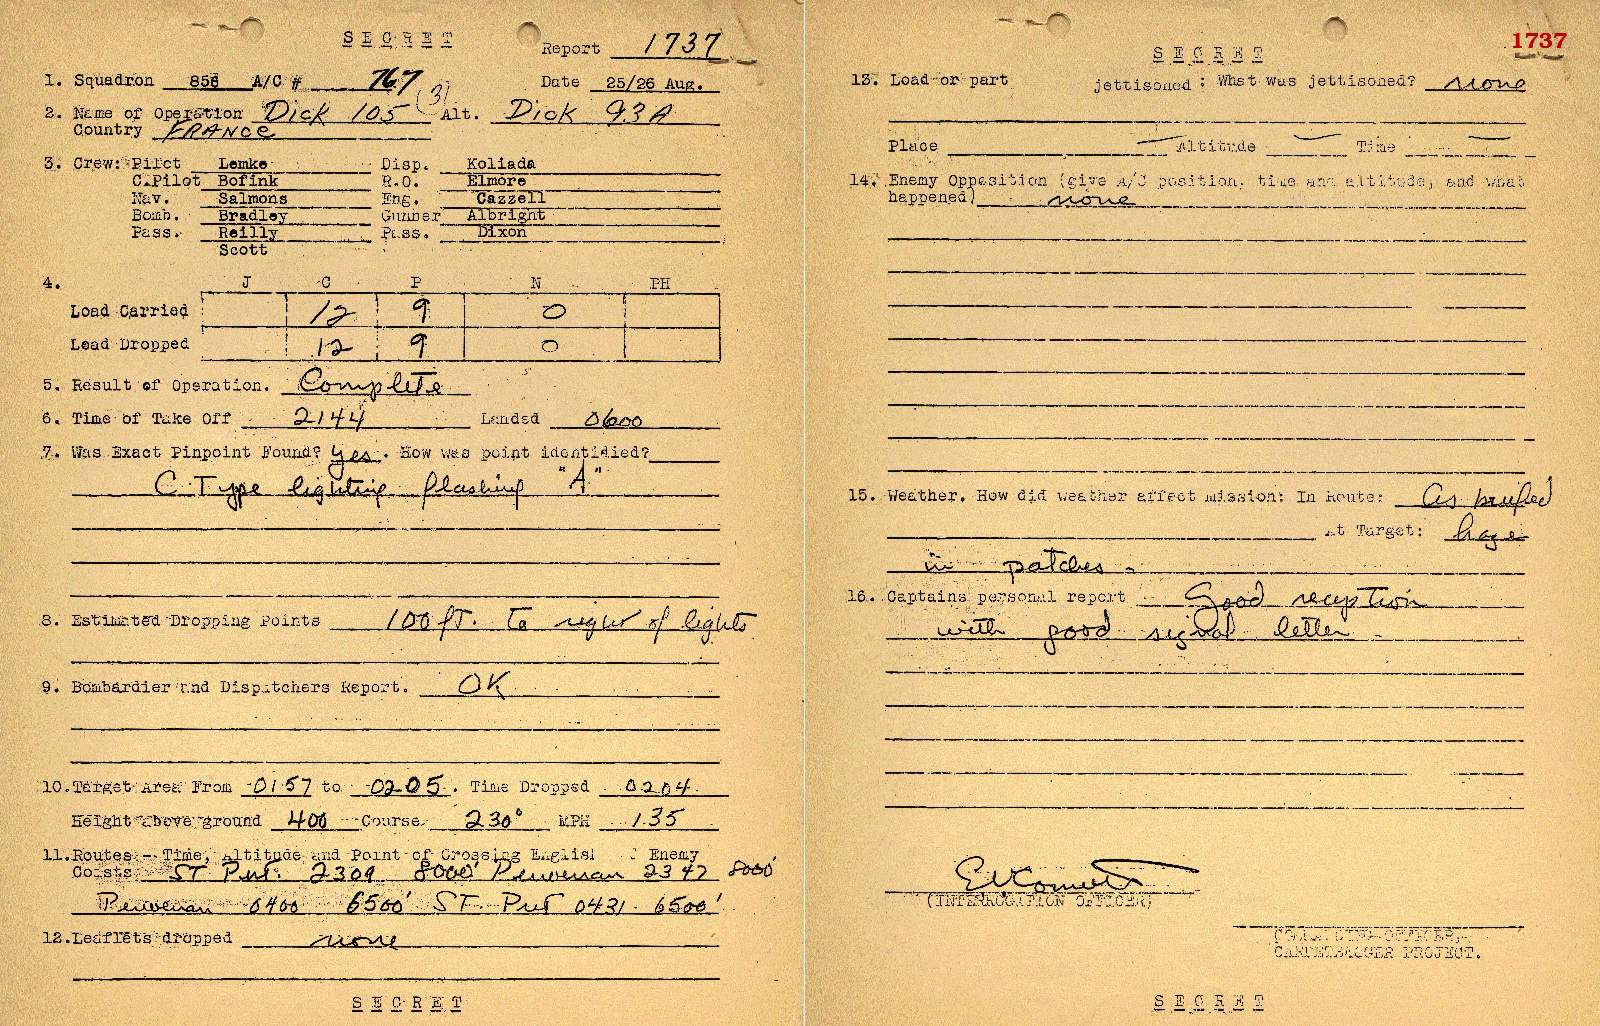 SECRET
Report 1737
1. Squadron 856 A/C # 767 Date 25/26 Aug.
2. Name of Operation Dick 105 (3) Alt. Dick 93A
Country FRANCE
3. Crew: Pilot Lemke Disp. Koliada
C.Pilot Bofink R.O. Elmore
Nav. Salmons Eng. Cazzell
Bomb. Bradley Gunner Albright
Pass. Reilly Pass. Dixon
Scott
4. J C P N PH
Load Carried 12 9 0
Load Dropped 12 9 0
5. Result of Operation. Complete
6. Time of Take Off 2144 Landed 0600
7. Was Exact Pinpoint Found? Yes. How was point identified?
C Type lighting flashing "A"
8. Estimated Dropping Points 100 ft. to right of lights
9. Bombardier and Dispatchers Report. OK
10. Target Area From 0157 to 0205. Time Dropped 0204
Height above ground 400 Course 230° MPH 135
11. Routes - Time, Altitude and Point of Crossing English Enemy
Coasts ST Put. 2309 8000' 2347 8000'
0400 6500' ST. Put 0431 6500'
12. Leaflets dropped none
SECRET
1737
SECRET
13. Load or part jettisoned: What was jettisoned? none
Place Altitude Time
14. Enemy Opposition (give A/C position, time and altitude, and what
happened) none
15. Weather. How did weather affect mission: In Route: As briefed
at Target: haze
in patches -
16. Captains personal report Good reception
with good signal letter -
(INTERROGATION OFFICER)
COMMANDING OFFICER,
CARPETBAGGER PROJECT.
SECRET